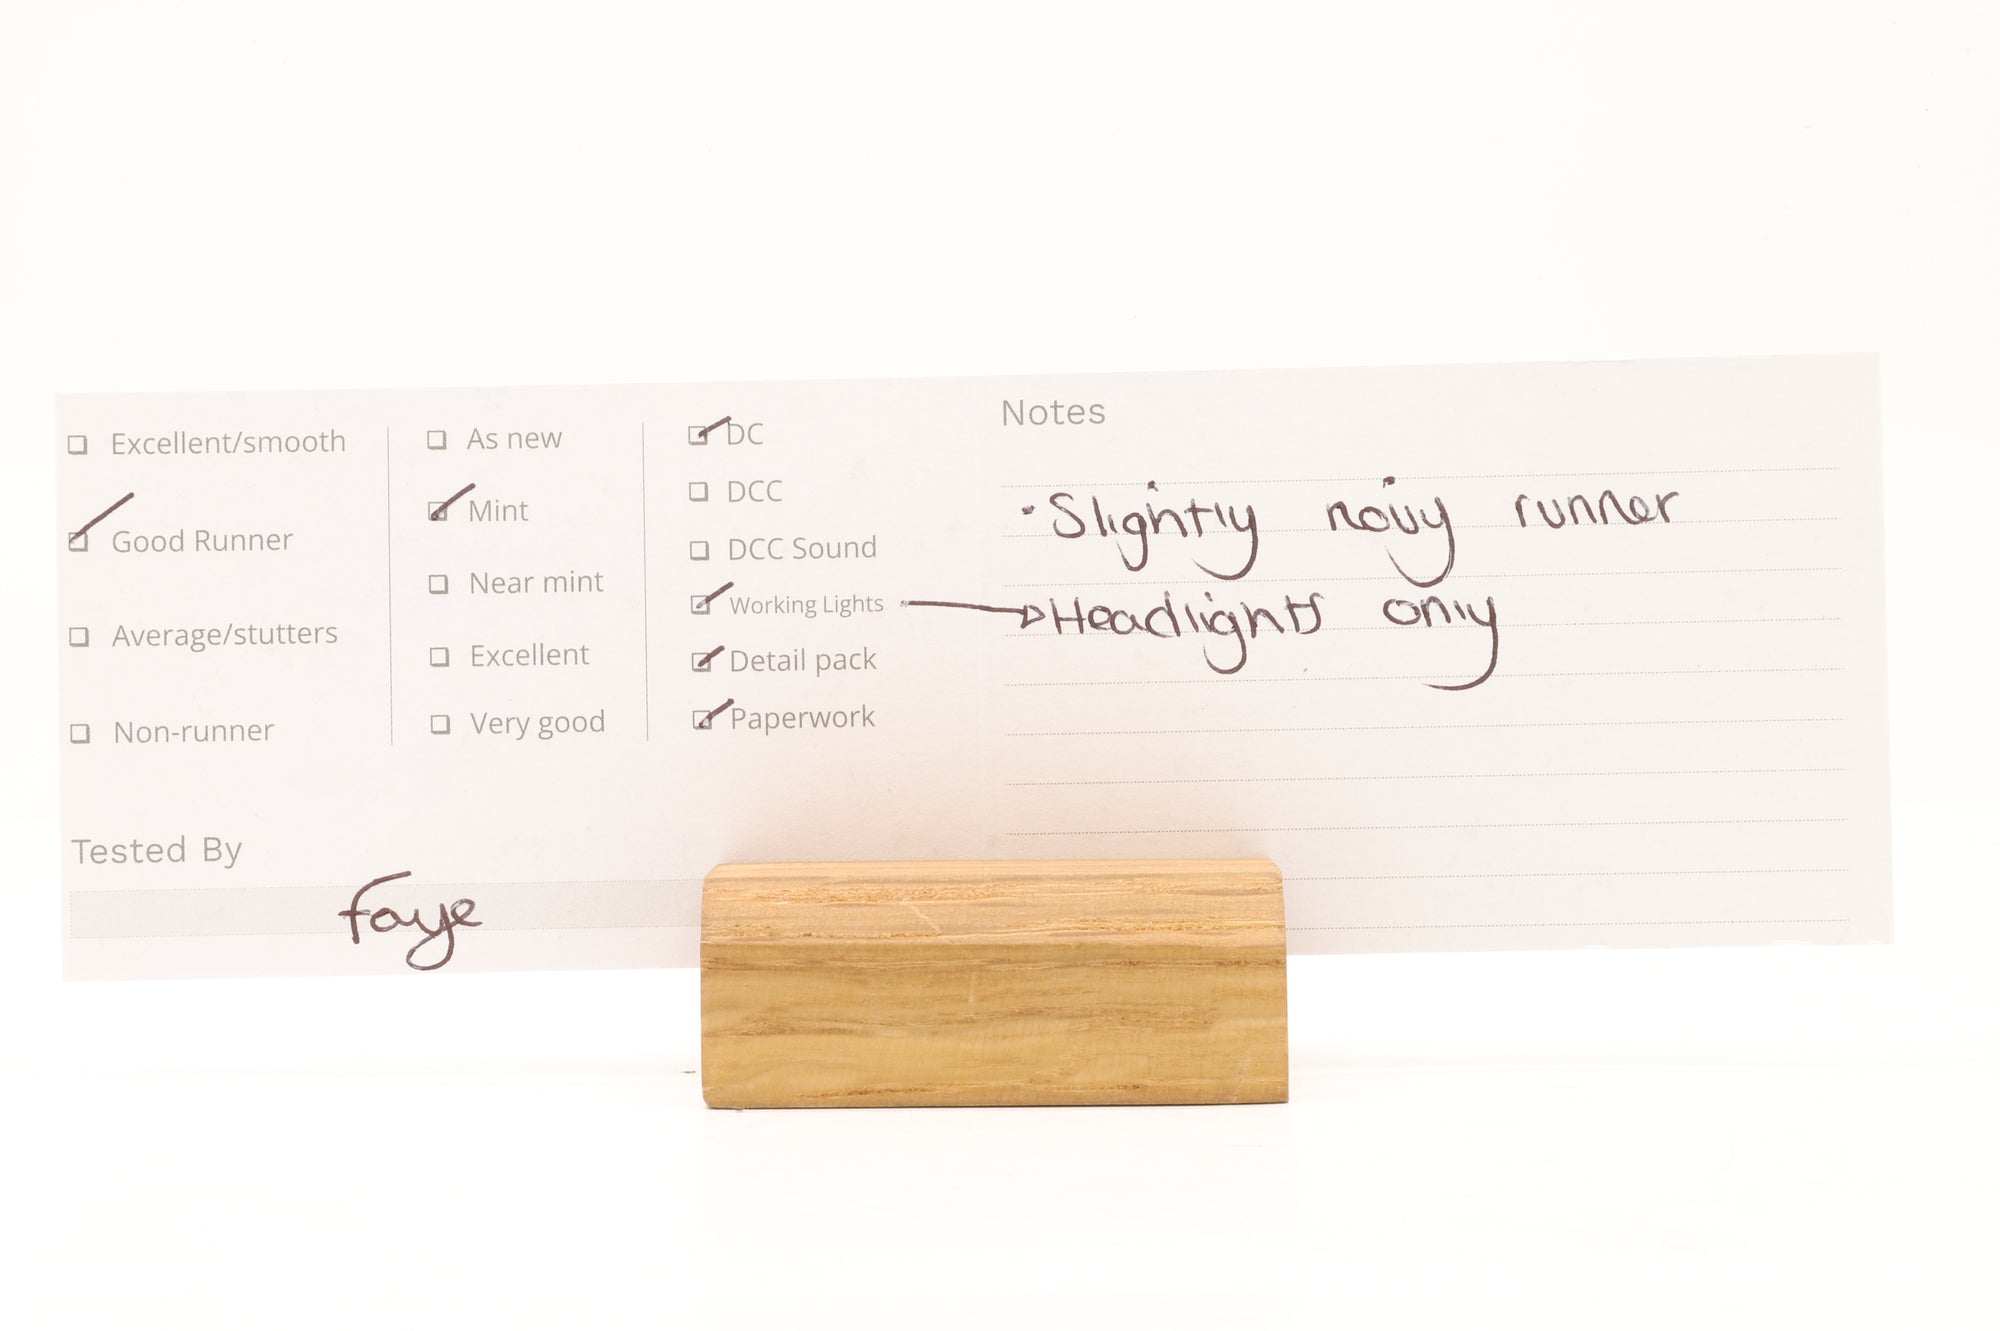 Excellent/smooth
Good Runner
Average/stutters
Non-runner
As new
Mint
Near mint
Excellent
Very good
DC
DCC
DCC Sound
Working Lights
Detail pack
Paperwork
Tested By
Faye
Notes
· Slightly noisy runner
Headlights only